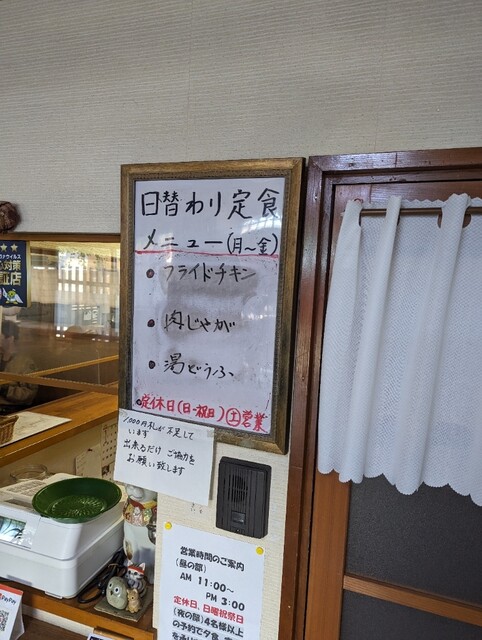 日替わり定食
メニュー(月〜金)
• フライドチキン
• 肉じゃが
• 湯どうふ
•定休日(日・祝日)㊏営業
1,000円札が不足して
います
出来るだけ ご協力を
お願い致します
営業時間のご案内
(昼の部)
AM 11:00〜
PM 3:00
定休日、日曜祝祭日
(夜の部)4名様以上
の予約で夕食
対策
PayPay